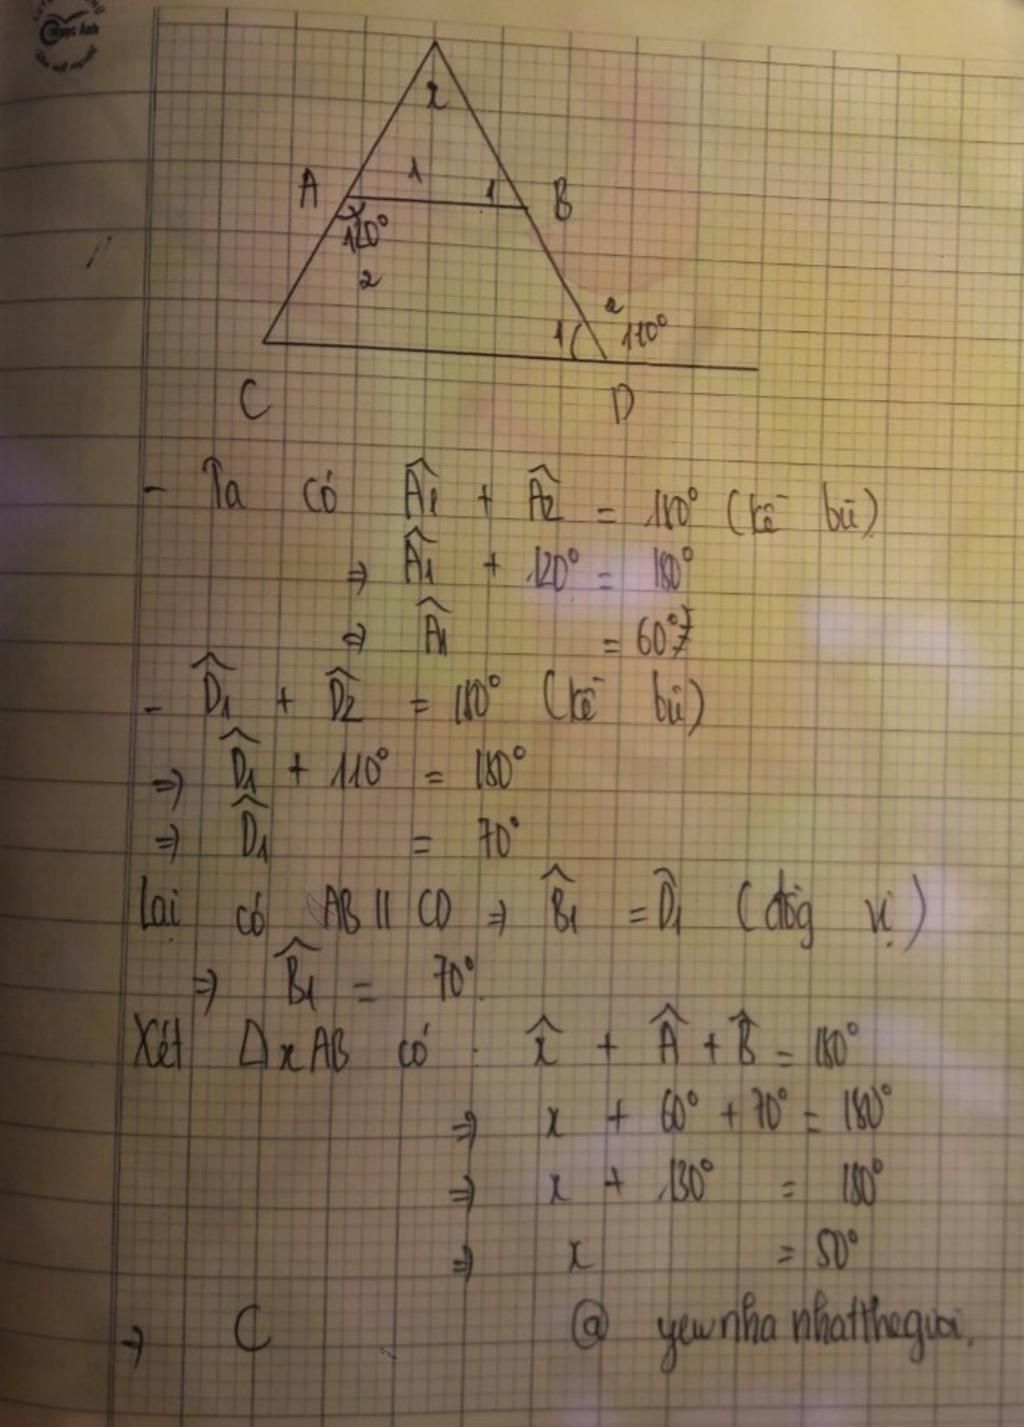 Ngọc Anh
x
A 1 1 B
120°
2
2
1 110°
C D
- Ta có Â1 + Â2 = 180° (kề bù)
⇒ Â1 + 120° = 180°
⇒ Â1 = 60°
- D̂1 + D̂2 = 180° (kề bù)
⇒ D̂1 + 110° = 180°
⇒ D̂1 = 70°
lại có AB || CD ⇒ B̂1 = D̂1 (đồg vị)
⇒ B̂1 = 70°.
Xét ΔxAB có : x̂ + Â + B̂ = 180°
⇒ x + 60° + 70° = 180°
⇒ x + 130° = 180°
⇒ x = 50°
→ C @ yewnhanhatthegioi.